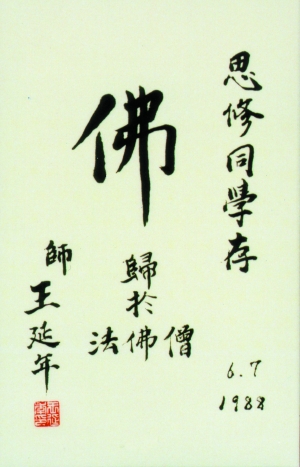 思修同學存
佛
歸於
法佛僧
師王延年
6.7
1988